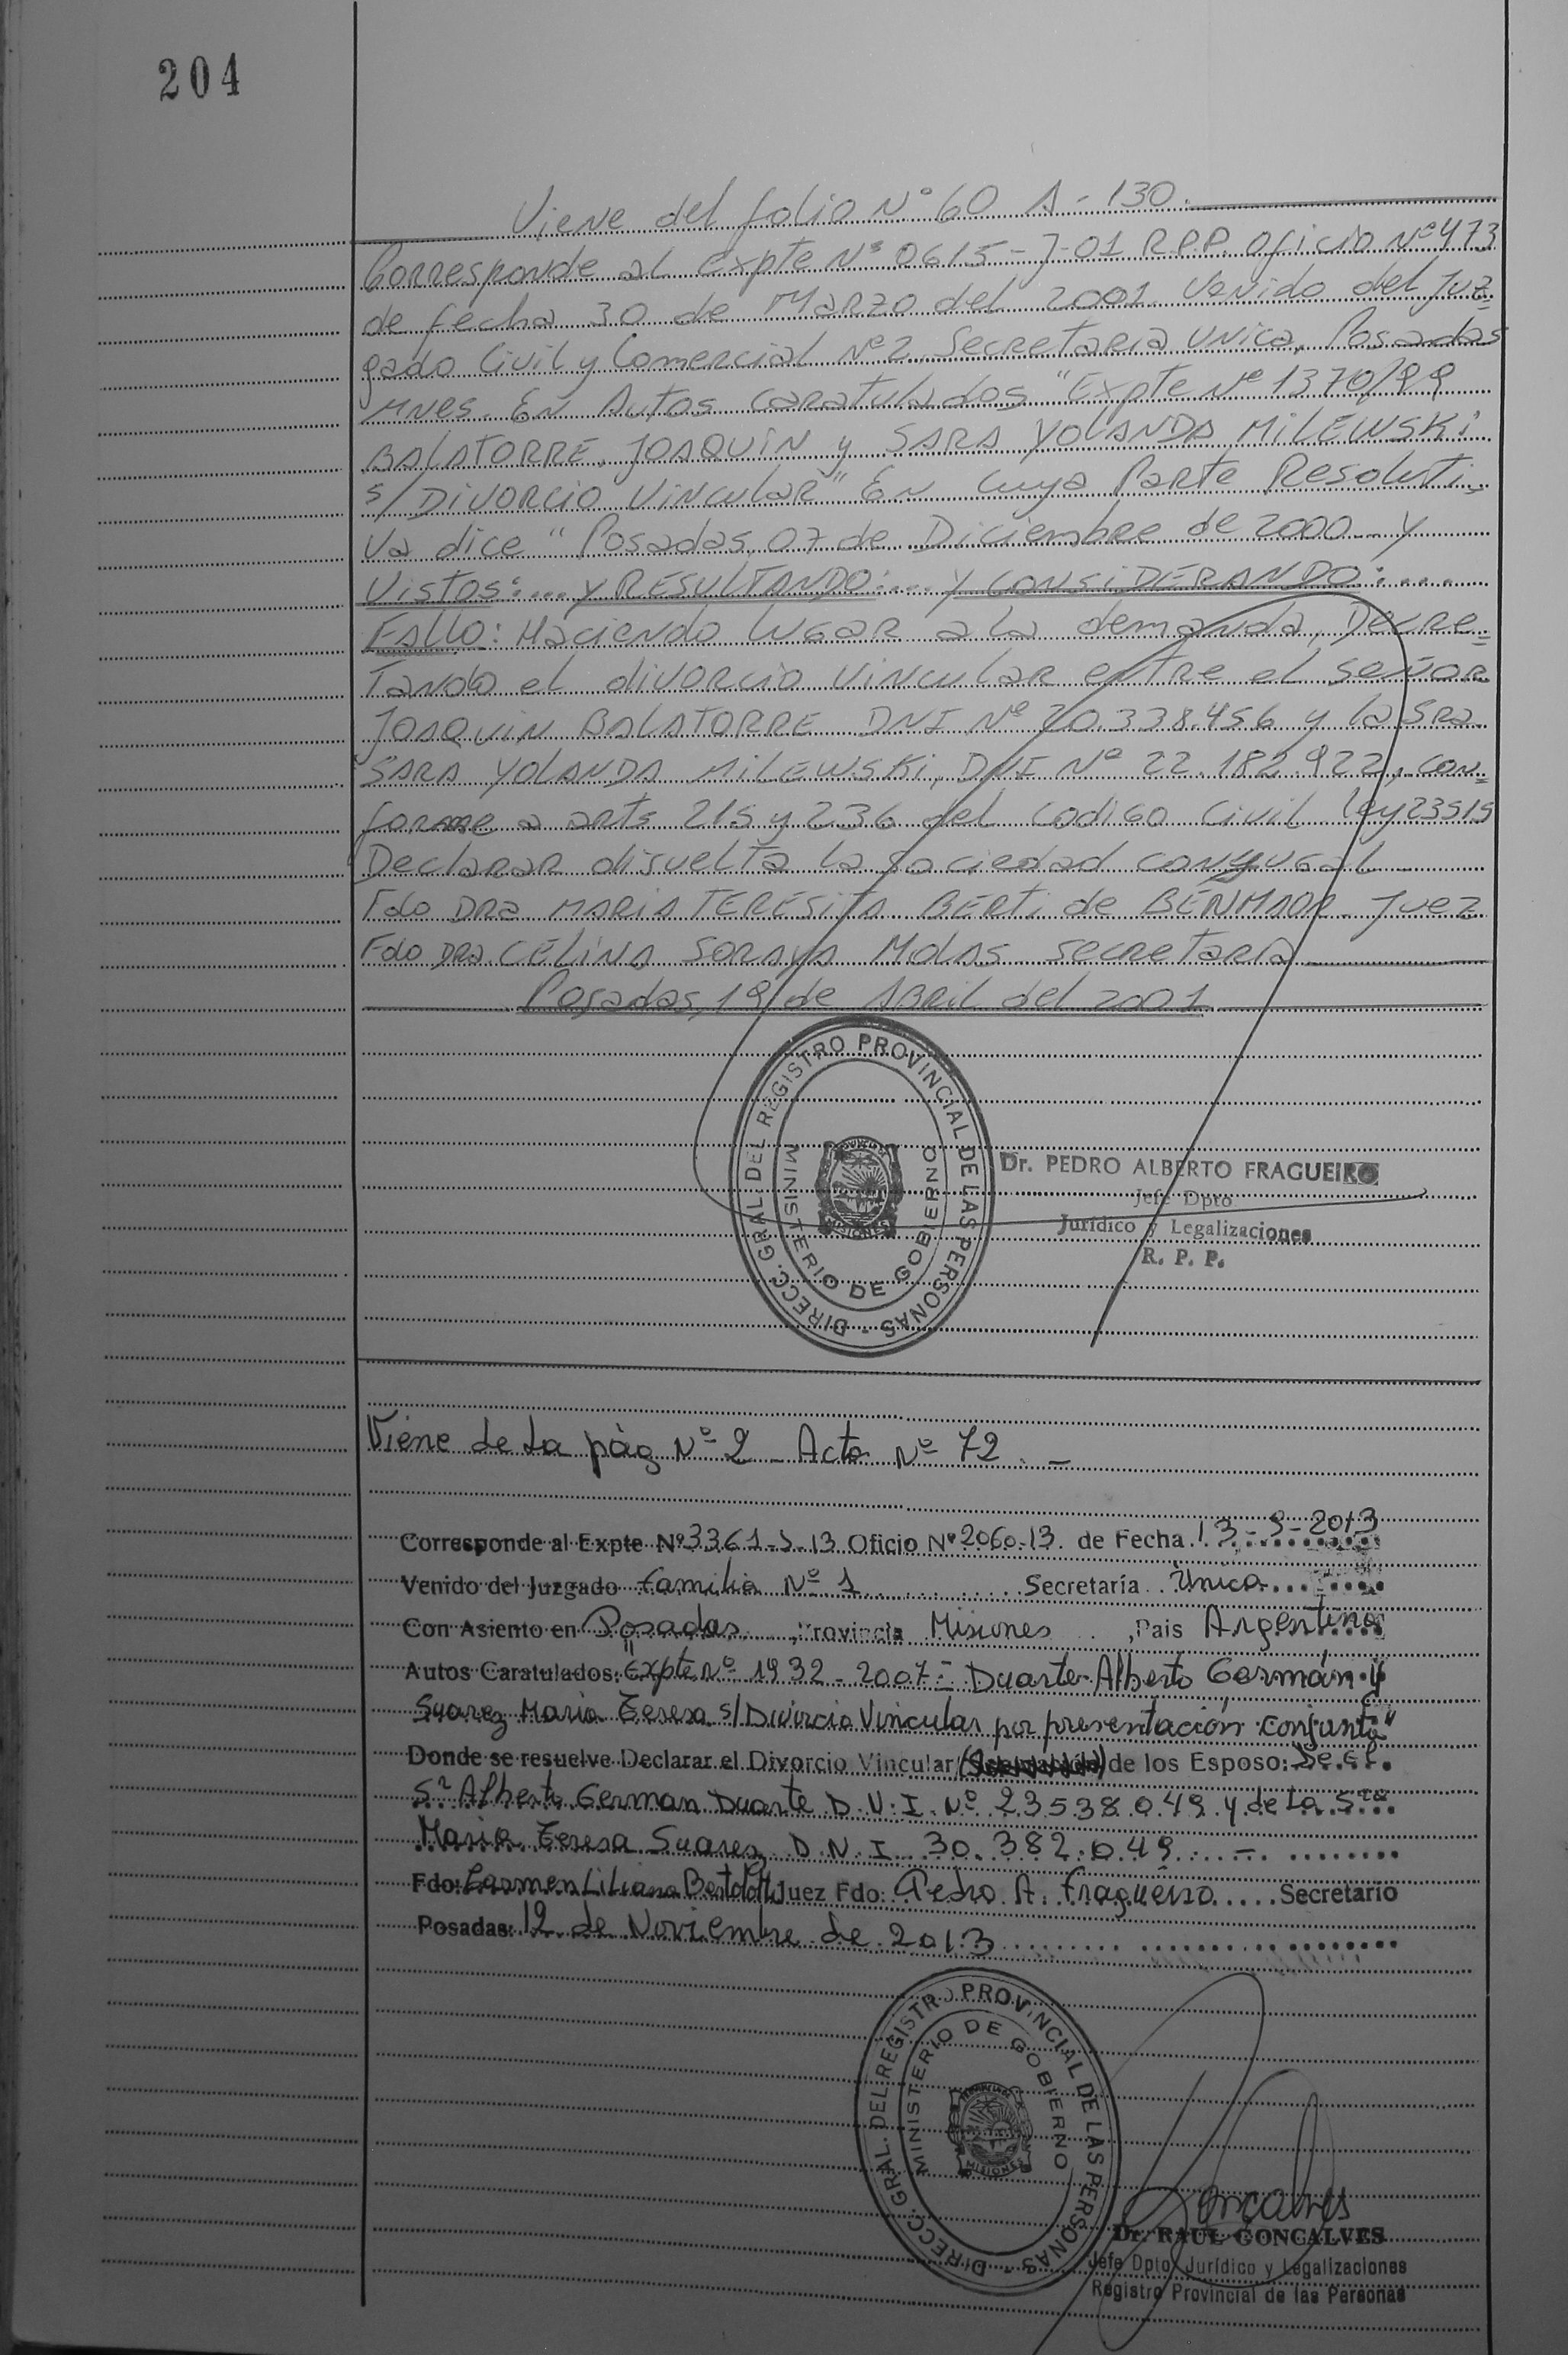 204
Viene del folio Nº 60 A - 130.
Corresponde al expte Nº 0615-J-01 R.P.P. oficio Nº 473
de fecha 30 de Marzo del 2001 Venido del Juz=
gado Civil y Comercial Nº 2 Secretaria Unica, Posadas
Mnes. En Autos caratulados "Expte Nº 1370/99
BALATORRE, JOAQUIN y SARA YOLANDA MILEWSKI
s/ DIVORCIO VINCULAR" En cuya Parte Resoluti=
va dice "Posadas, 07 de Diciembre de 2000 Y
Vistos:... Y RESULTANDO:... Y CONSIDERANDO:....
FALLO: Haciendo lugar a la demanda, Decre=
tando el divorcio vincular entre el señor
JOAQUIN BALATORRE DNI Nº 20.338.456 y la Sra
SARA YOLANDA MILEWSKI, DNI Nº 22.182.922, con=
forme a arts 215 y 236 del codigo Civil ley 23515
Declarar disuelta la sociedad conyugal
Fdo DRA MARIA TERESITA BERTI de BENMAOR Juez
Fdo DRA. CELINA SORAYA MOLAS secretaria
Posadas, 19 de Abril del 2001
DIRECC. GRAL. DEL REGISTRO PROVINCIAL DE LAS PERSONAS -
MINISTERIO DE GOBIERNO
MISIONES
Dr. PEDRO ALBERTO FRAGUEIRO
Jefe Dpto
Jurídico y Legalizaciones
R. P. P.
Viene de la pág Nº 2 - Acta Nº 72. -
Corresponde al Expte Nº 3361-J-13 Oficio Nº 2060-13 de Fecha 13-9-2013
Venido del Juzgado Familia Nº 1 Secretaría Única
Con Asiento en Posadas, Provincia Misiones, Pais Argentina
Autos Caratulados: "Expte Nº 1932-2007 - Duarte Alberto Germán y
Suarez Maria Teresa s/ Divorcio Vincular por presentación conjunta"
Donde se resuelve Declarar el Divorcio Vincular de los Esposo: De el
Sr Alberto German Duarte D.N.I. Nº 23538049 y de la Sra
Maria Teresa Suarez D.N.I. 30.382.049. -
Fdo: Carmen Liliana Bertolotti Juez Fdo: Pedro A. Fragueiro Secretario
Posadas: 12 de Noviembre de 2013
DIRECC. GRAL. DEL REGISTRO PROVINCIAL DE LAS PERSONAS -
MINISTERIO DE GOBIERNO
MISIONES
Goncalves
Dr. RAUL GONCALVES
Jefe Dpto. Jurídico y Legalizaciones
Registro Provincial de las Personas